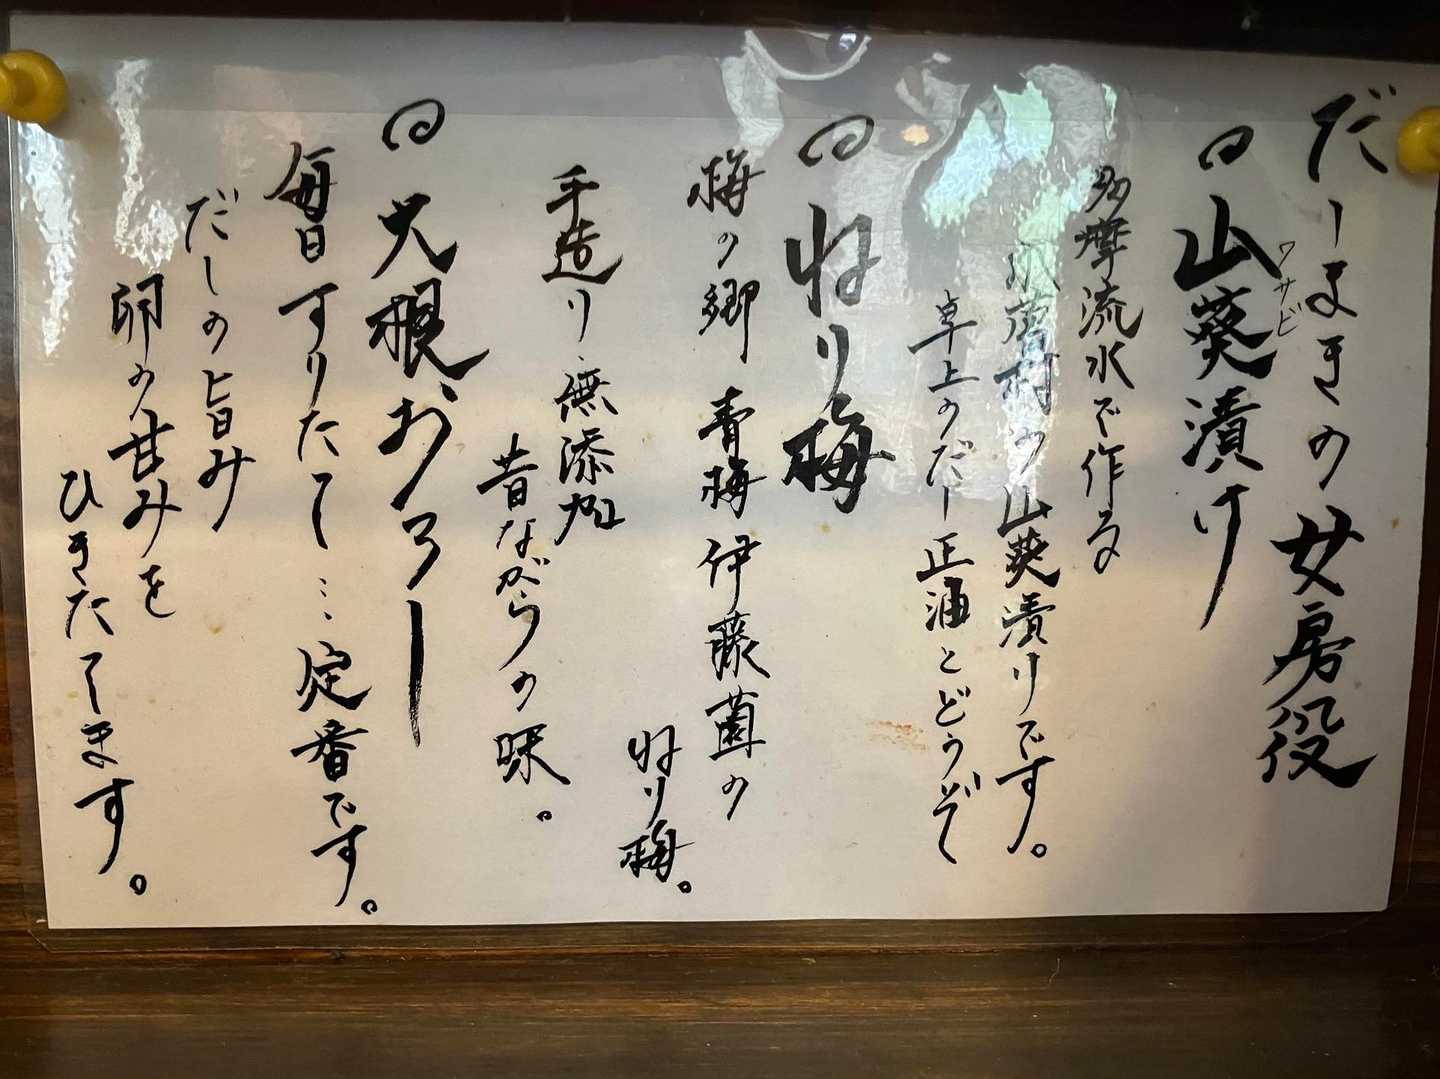 だしまきの女房役
山葵漬け
ワサビ
多摩流水で作る
山葵漬けです。
卓上のだし正油とどうぞ
ねり梅
梅の郷 青梅 伊藤薗の
ねり梅。
手造り 無添加
昔ながらの味。
大根おろし
毎日すりたて…定番です。
だしの旨み
卵の甘みを
ひきたてます。